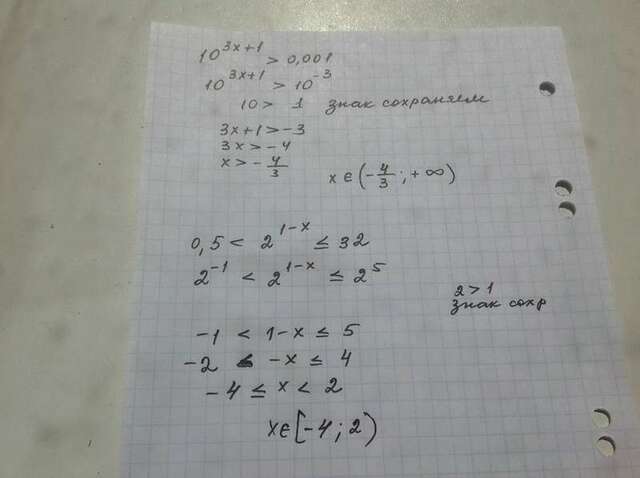 10^{3x+1} > 0,001
10^{3x+1} > 10^{-3}
10 > 1 знак сохраняем
3x+1 > -3
3x > -4
x > -4/3
x ∈ (-4/3; +∞)
0,5 < 2^{1-x} ≤ 32
2^{-1} < 2^{1-x} ≤ 2^5
2 > 1
знак сохр
-1 < 1-x ≤ 5
-2 < -x ≤ 4
-4 ≤ x < 2
x ∈ [-4; 2)